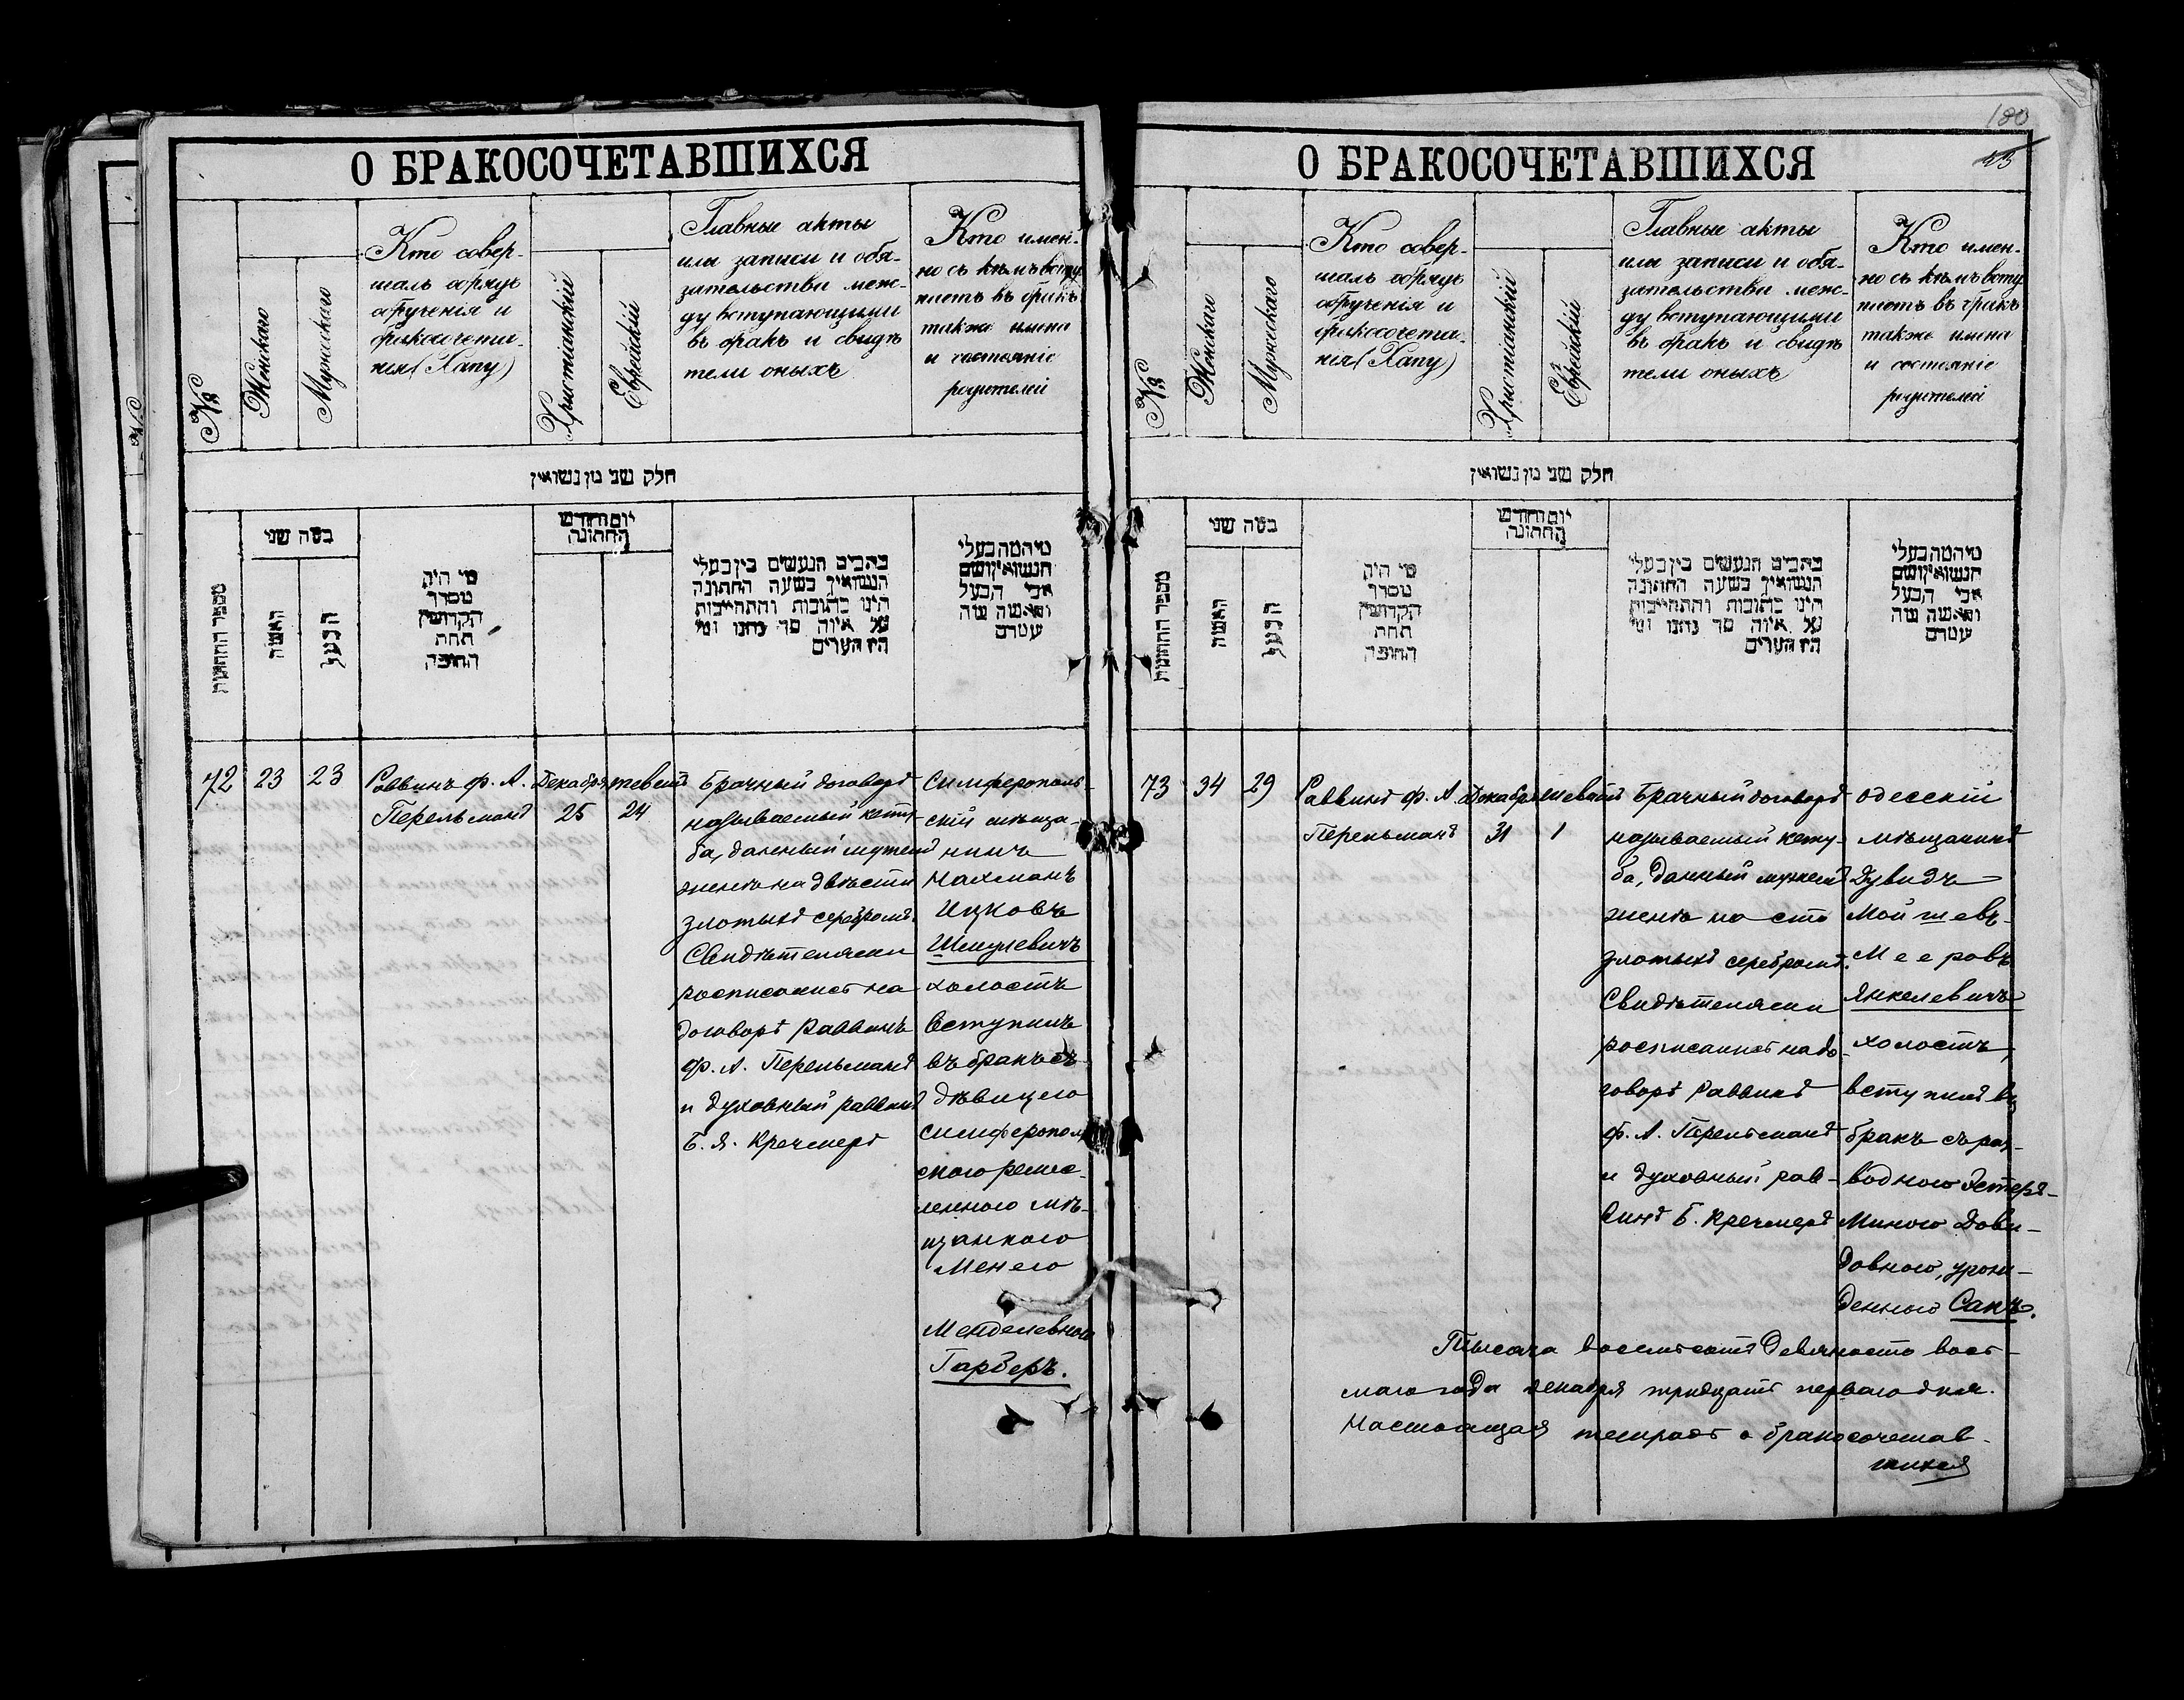 О БРАКОСОЧЕТАВШИХСЯ
№
Женскаго
Мужескаго
Кто совер-
шалъ обрядъ
обрученія и
бракосочета-
нія (Хапу)
Христіанскій
Еврейскій
Главные акты
или записи и обя-
зательства меж-
ду вступающими
въ бракъ и свидѣ
тели оныхъ
Кто имен-
но съ кѣмъ всту
паетъ въ бракъ
также имена
и состояніе
родителей
חלק שני מן נשואין
מספר החתונות
בסה שני
האשה
הבעל
מי היה
מסדר
הקדושין
תחת
החופה
יום וחודש
החתונה
הנעשים בין בעלי
הנשואין בשעה החתונה
היינו כתובות והתחייבות
על איזה סך נתנו ומי
בעלי
הנשואין ושם
אבי הבעל
72
23
23
Раввинъ Ф. А.
Перельманъ
Декабря
25
тевета
24
Брачный договоръ
называемый кету-
ба, данный мужемъ
женѣ на двѣсти
злотыхъ серебромъ.
Свидѣтелями
росписались на
договорѣ раввинъ
Ф. А. Перельманъ
и духовный раввинъ
Б. Я. Кречмеръ
Симферополь-
скій мѣща-
нинъ
Нахманъ
Ицковъ
Шмулевичъ
холостъ
вступилъ
въ бракъ съ
дѣвицею
симферополь
скою ремес-
ленною мѣ-
щанкою
Менею
Менделевною
Гарберъ.
О БРАКОСОЧЕТАВШИХСЯ
180
№
Женскаго
Мужескаго
Кто совер-
шалъ обрядъ
обрученія и
бракосочета-
нія (Хапу)
Христіанскій
Еврейскій
Главные акты
или записи и обя-
зательства меж-
ду вступающими
въ бракъ и свидѣ
тели оныхъ
Кто имен-
но съ кѣмъ всту
паетъ въ бракъ
также имена
и состояніе
родителей
חלק שני מן נשואין
מספר החתונות
בסה שני
האשה
הבעל
מי היה
מסדר
הקדושין
תחת
החופה
יום וחודש
החתונה
הנעשים בין בעלי
הנשואין בשעה החתונה
היינו כתובות והתחייבות
על איזה סך נתנו ומי
בעלי
הנשואין ושם
אבי הבעל
73
34
29
Раввинъ Ф. А.
Перельманъ
Декабря
31
шевата
1
Брачный договоръ
называемый кету-
ба, данный мужемъ
женѣ на сто
злотыхъ серебромъ.
Свидѣтелями
росписались на до-
говорѣ раввинъ
Ф. А. Перельманъ
и духовный рав-
винъ Б. Кречмеръ
Одесскій
мѣщанинъ
Дувидъ
Мойшевъ-
Мееровъ
Янкелевичъ
холостъ,
вступилъ въ
бракъ съ раз-
водною Эстеръ-
Миною Дови-
довною, урож-
денною Сакъ.
Тысяча восемьсотъ девяносто вось-
маго года декабря тридцать перваго дня.
Настоящая тетрадь о бракосочетав-
шихся